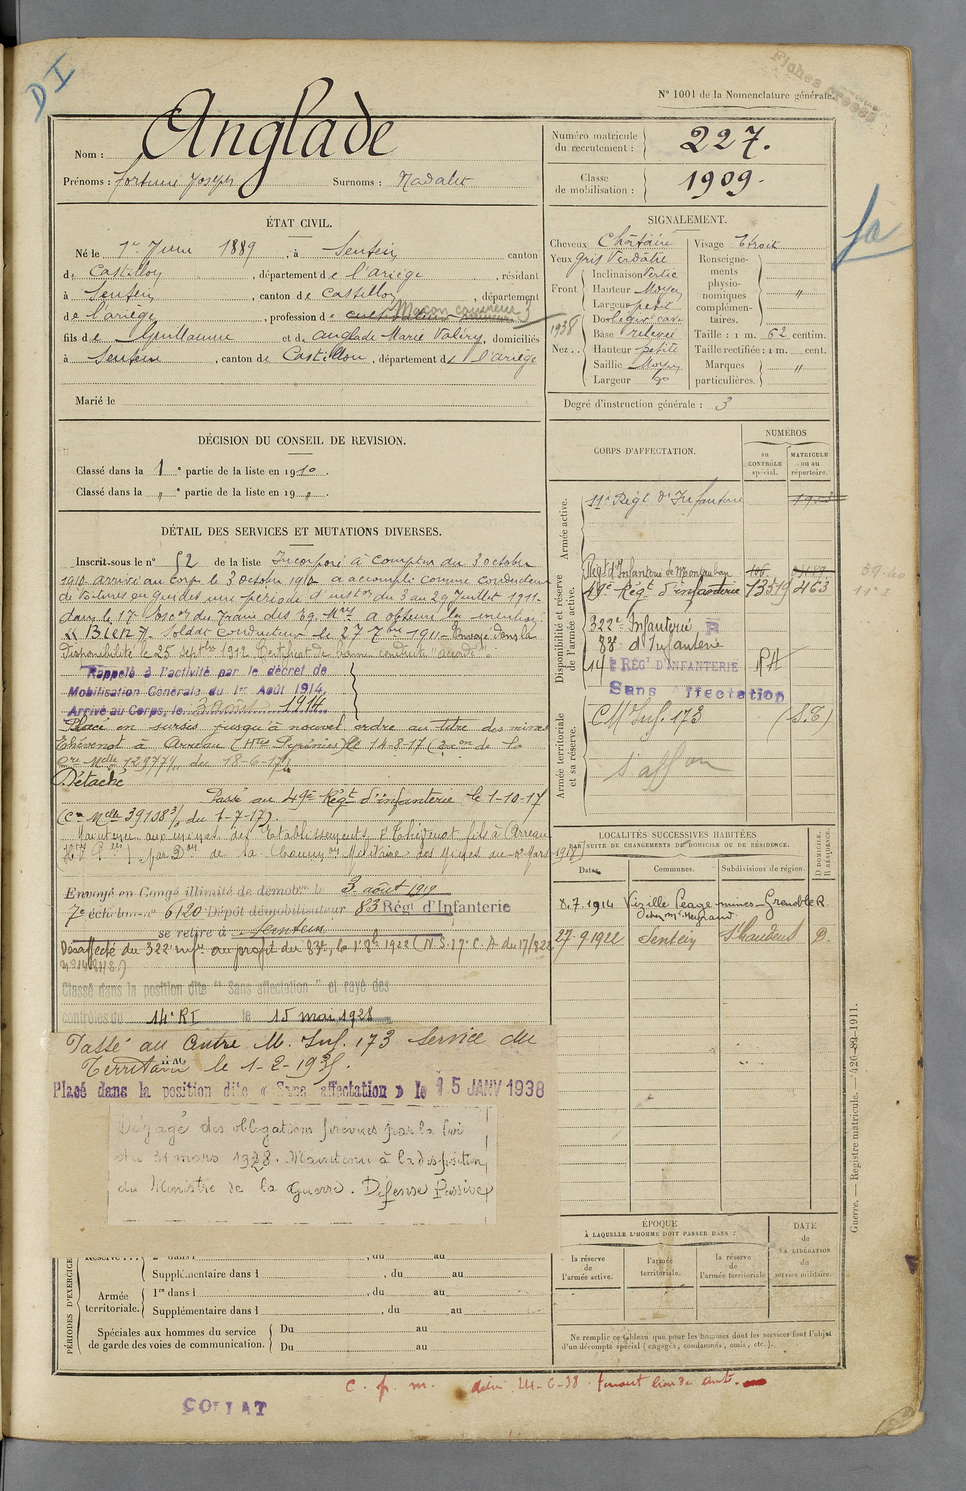 D I
Fiches
N° 1001 de la Nomenclature générale.
Nom : Anglade
Prénoms : Fortuné Joseph Surnoms : Nadalet
Numéro matricule du recrutement : 227.
Classe de mobilisation : 1909.
ÉTAT CIVIL.
Né le 1er Juin 1889, à Sentein canton
de Castillon, département de l'ariège, résidant
à Sentein, canton de Castillon, département
de l'ariège, profession de cultivateur Maçon couvreur
fils de Guillaume et de anglade Marie Valéry, domiciliés
à Sentein, canton de Castillon, département de l'ariège
Marié le
SIGNALEMENT.
Cheveux Châtains
Yeux gris verdâtre
Front. Inclinaison Vertic
Hauteur Moyen
Largeur petit
Nez. Dos
Base relevée
Hauteur petite
Saillie Moyen
Largeur d°
Visage Etroit
Renseignements physionomiques complémentaires. "
Taille : 1 m. 62 centim.
Taille rectifiée : 1 m. cent.
Marques particulières. "
Degré d'instruction générale : 3
1938
DÉCISION DU CONSEIL DE REVISION.
Classé dans la 1 e partie de la liste en 1910.
Classé dans la " e partie de la liste en 19 ".
DÉTAIL DES SERVICES ET MUTATIONS DIVERSES.
Inscrit sous le n° 52 de la liste Incorporé à compter du 3 octobre
1910. arrivé au corps le 3 octobre 1910 a accompli comme conducteur
de voitures en guides une période d'instion du 3 au 29 Juillet 1911
dans le 17e Escon du Train des Eq. Mres a obtenu la mention
"Bien". Soldat conducteur le 27 7bre 1911. Envoyé dans la
Disponibilité le 25 septbre 1912 Certificat de bonne conduite "accordé".
Rappelé à l'activité par le décret de
Mobilisation Générale du 1er Août 1914,
Arrivé au Corps, le 3 août 1914.
Placé en sursis jusqu'à nouvel ordre au titre des mines
Thévenot à Arreau (Htes Pyrénées) le 14-8-17
du 18-6-17
Détaché
Passé au 49e Régt d'infanterie le 1-10-17
du 1-7-17).
Maintenu aux mines des Etablissements Thévenot fils à Arreau
Envoyé en Congé illimité de démobon le 3 août 1919
7e échelon n° 6120 Dépôt démobilisateur 83 Régt d'Infanterie
se retire à Sentein
Désaffecté du 322e Infie au profit du 83e,
Classé dans la position dite "Sans affectation" et rayé des
contrôles du 14e RI le 15 mai 1928
Passé au Centre M. Inf. 173 service du
Territoire le 1-2-
Placé dans la position dite « Sans affectation » le 15 JANV 1938
Dégagé des obligations prévues par la loi
du 31 mars 1928. Maintenu à la disposition
du Ministre de la Guerre. Défense Passive
CORPS D'AFFECTATION.
NUMÉROS
au CONTRÔLE spécial.
MATRICULE ou au répertoire.
Armée active.
11e Régt d'Infanterie
Disponibilité et réserve de l'armée active.
Régt d'Infanterie de Montauban
49e Régt d'infanterie 13519 463
322e Infanterie R
83e d'Infanterie
14e RÉGt D'INFANTERIE
Sans affectation
Armée territoriale et sa réserve.
C M Inf. 173 (S.T)
s'affon
LOCALITÉS SUCCESSIVES HABITÉES
PAR SUITE DE CHANGEMENTS DE DOMICILE OU DE RÉSIDENCE.
Dates. Communes. Subdivisions de région. D DOMICILE. R RÉSIDENCE.
8.7.1914 Vizille Péage mines Grenoble R
27-9 1922 Sentein St Gaudens D.
ÉPOQUE
À LAQUELLE L'HOMME DOIT PASSER DANS :
la réserve de l'armée active.
l'armée territoriale.
la réserve de l'armée territoriale
DATE de LA LIBÉRATION du service militaire.
PÉRIODES D'EXERCICE
Supplémentaire dans l , du au
Armée territoriale. 1re dans l , du au
Supplémentaire dans l , du au
Spéciales aux hommes du service de garde des voies de communication. Du au
Du au
Ne remplir ce tableau que pour les hommes dont les services font l'objet
d'un décompte spécial (engagés, condamnés, omis, etc.).
Guerre. — Registre matricule. — 426-89-1911.
C. p. m. 24-6-38
COLLAT